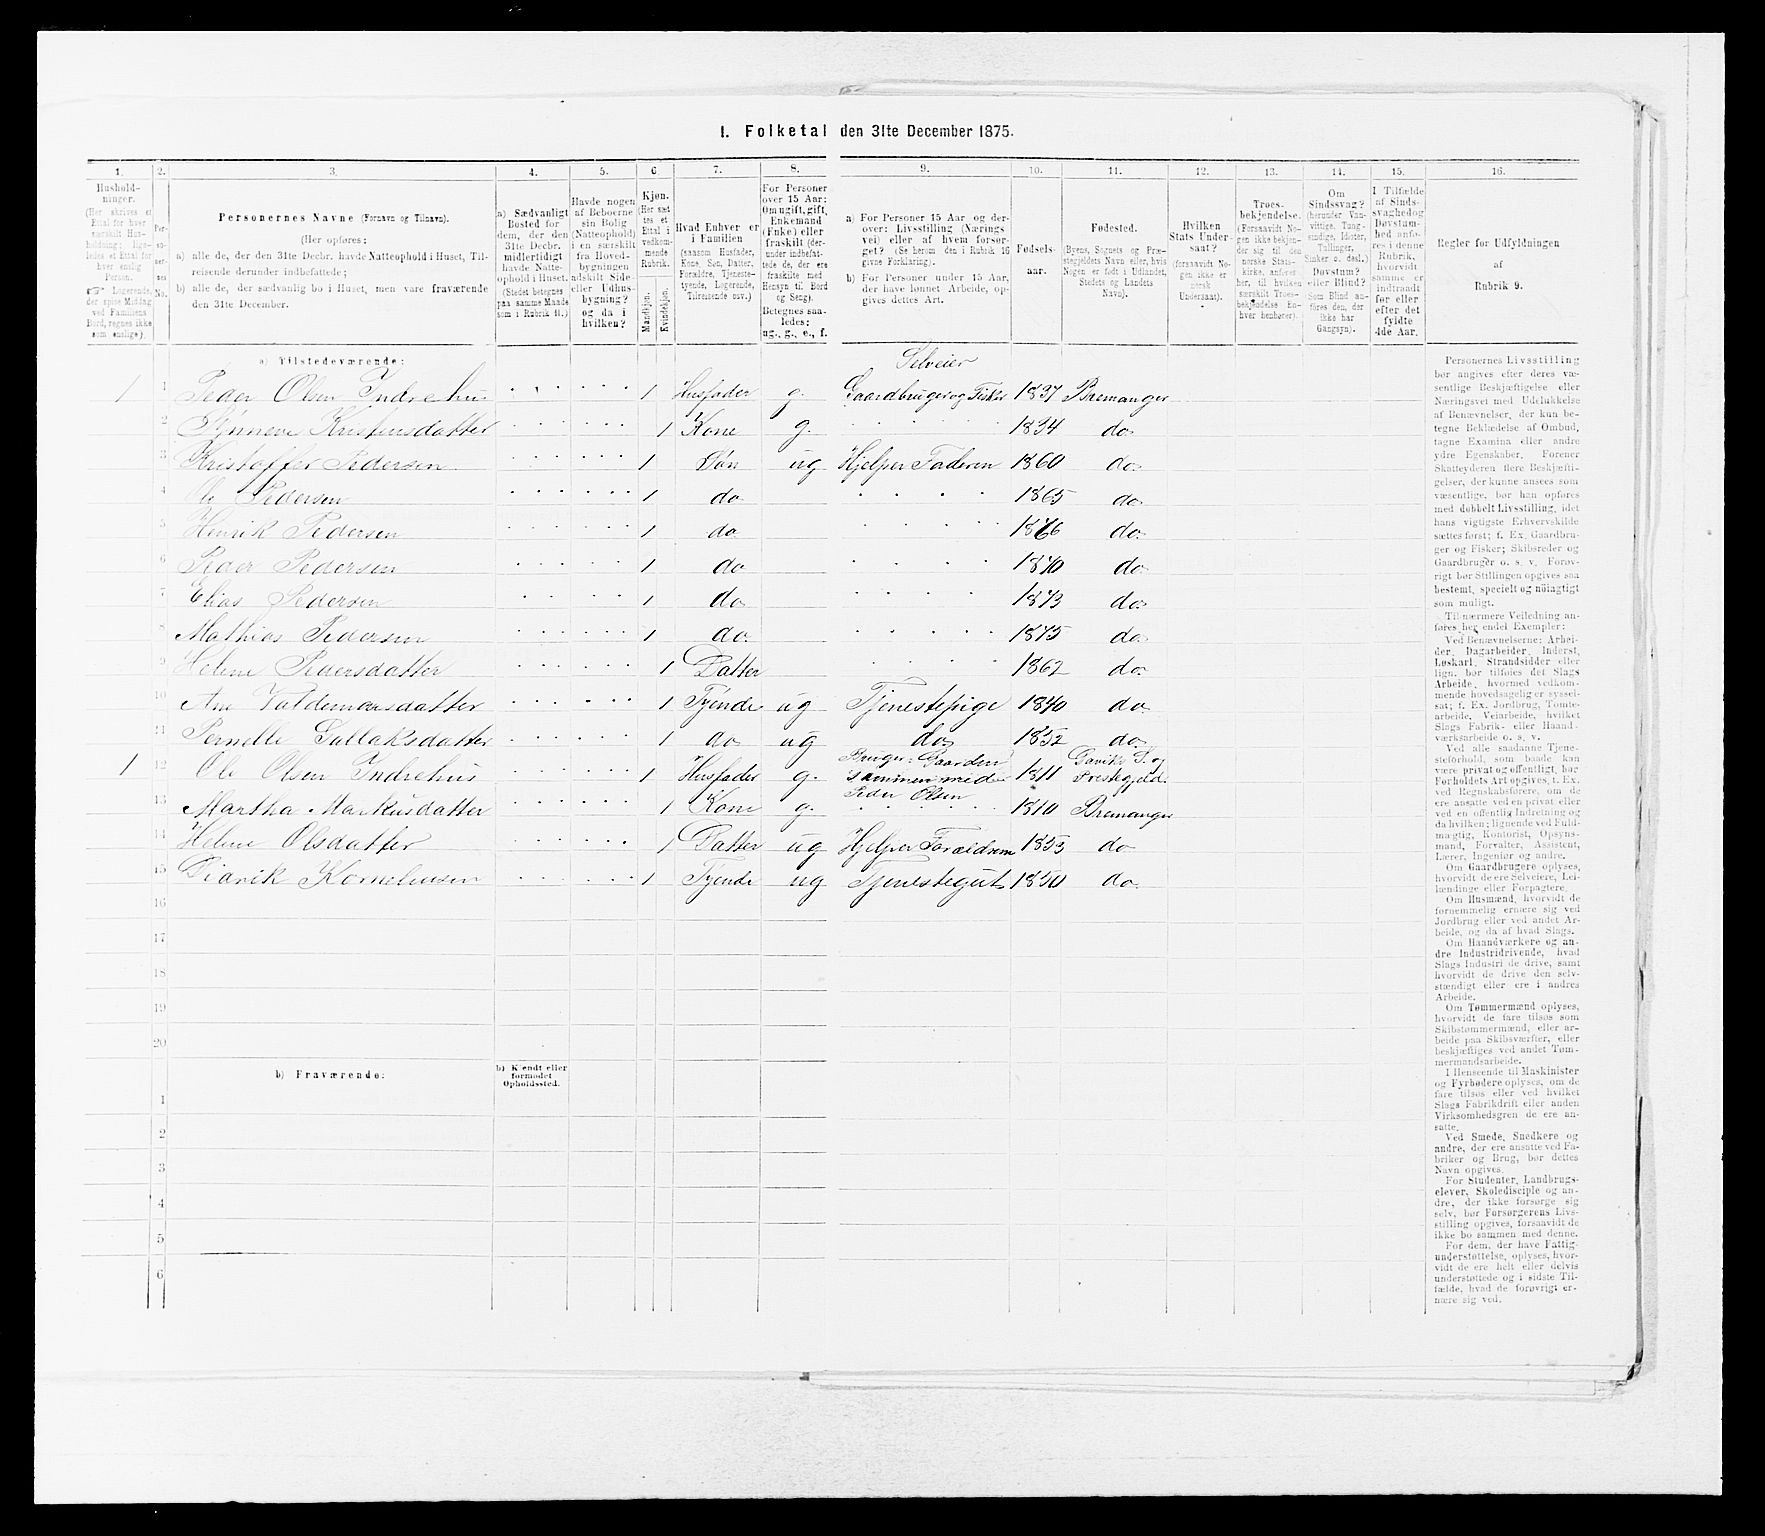 1. Folketal den 31te December 1875.
1. 2. 3. 4. 5. 6. 7. 8. 9. 10. 11. 12. 13. 14. 15. 16.
Hushold-
ninger.
(Her skrives et
Ettal for hver
særskilt Hus-
holdning; lige-
ledes et Ettal for
hver enslig
Person.
☞ Logerende,
der spise Middag
ved Familiens
Bord, regnes ikke
som enslige).
Per-
so-
ner-
nes
No.
Personernes Navne (Fornavn og Tilnavn).
(Her opføres:
a) alle de, der den 31te Decbr. havde Natteophold i Huset, Til-
reisende derunder indbefattede;
b) alle de, der sædvanlig bo i Huset, men vare fraværende
den 31te December.
a) Sædvanligt
Bosted for
dem, der den
31te Decbr.
midlertidigt
havde Natte-
ophold i Huset.
(Stedet betegnes
paa samme Maade
som i Rubrik 11.)
Havde nogen
af Beboerne
sin Bolig
(Natteophold)
i en særskilt
fra Hoved-
bygningen
adskilt Side-
eller Udhus-
bygning?
og da i
hvilken?
Kjøn.
(Her sæt
tes et
Ettal i
vedkom-
mende
Rubrik.
Mandkjøn.
Kvindekjøn.
Hvad Enhver er
i Familien
(saasom Husfader,
Kone, Søn, Datter,
Forældre, Tjeneste-
tyende, Logerende,
Tilreisende osv.)
For Personer
over 15 Aar:
Om ugift, gift,
Enkemand
(Enke) eller
fraskilt (der-
under indbefat-
tede de, der ere
fraskilte med
Hensyn til Bord
og Seng).
Betegnes saa-
ledes:
ug., g., e., f.
a) For Personer 15 Aar og der-
over: Livsstilling (Nærings
vei) eller af hvem forsør-
get? (Se herom den i Rubrik 16
givne Forklaring).
b) For Personer under 15 Aar,
der have lønnet Arbeide, op-
gives dettes Art.
Fødsels-
aar.
Fødested.
(Byens, Sognets og Præ-
stegjeldets Navn eller, hvis
Nogen er født i Udlandet,
Stedets og Landets
Navn).
Hvilken
Stats Under-
saat?
(forsaavidt No-
gen ikke er
norsk
Undersaat).
Troes-
bekjendelse.
(Forsaavidt No-
gen ikke bekjen-
der sig til den
norske Stats-
kirke, anføres
her, til hvilken
særskilt Troes-
bekjendelse En-
hver henhører).
Om
Sindssvag?
(herunder Van-
vittige, Tung-
sindige, Idioter,
Tullinger,
Sinker o. desl.)
Døvstum?
eller Blind?
(Som Blind an-
føres den, der
ikke har
Gangsyn).
I Tilfælde
af Sinds-
svaghed og
Døvstum-
hed anfø-
res i denne
Rubrik,
hvorvidt
samme er
indtraadt
før eller
efter det
fyldte
4de Aar.
Regler for Udfyldningen
af
Rubrik 9.
a) Tilstedeværende:
Selveier
1 1 Peder Olsen Indrehus 1 Husfader g. Gaardbruger og Fisker 1837 Bremanger
2 Synneve Kristensdatter 1 Kone g. 1834 do
3 Kristoffer Pedersen 1 Søn ug Hjelper Faderen 1860 do
4 Ole Pedersen 1 do 1865 do
5 Henrik Pedersen 1 do 1866 do
6 Peder Pedersen 1 do 1870 do
7 Elias Pedersen 1 do 1873 do
8 Mathias Pedersen 1 do 1875 do
9 Helene Pedersdatter 1 Datter 1862 do
10 Ane Valdemarsdatter 1 Tyende ug Tjenestepige 1840 do
11 Pernelle Gullaksdatter 1 do ug do 1852 do
1 12 Ole Olsen Indrehus 1 Husfader g. Bruger Gaarden sammen med Peder Olsen 1811 Daviks S. og Prestegjeld
13 Martha Markusdatter 1 Kone g. 1810 Bremanger
14 Helene Olsdatter 1 Datter ug Hjelper Foreldrene 1853 do
15 Didrik Korneliusen 1 Tyende ug Tjenestegut 1850 do
16
17
18
19
20
b) Fraværende:
b) Kjendt eller
formodet
Opholdssted.
1
2
3
4
5
6
Personernes Livsstilling
bør angives efter deres væ-
sentlige Beskjæftigelse eller
Næringsvei med Udelukkelse
af Benævnelser, der kun be-
tegne Beklædelse af Ombud,
tagne Examina eller andre
ydre Egenskaber. Forener
Skatteyderen flere Beskjæfti-
gelser, der kunne ansees som
væsentlige, bør han opføres
med dobbelt Livsstilling, idet
hans vigtigste Erhvervskilde
sættes først; f. Ex. Gaardbru-
ger og Fisker; Skibsreder og
Gaardbruger o. s. v. Forøv-
rigt bør Stillingen opgives saa
bestemt, specielt og nøiagtigt
som muligt.
Til nærmere Veiledning an-
føres her endel Exempler:
Ved Benævnelserne: Arbei-
der, Dagarbeider, Inderst,
Løskarl, Strandsidder eller
lign. bør tilføies det Slags
Arbeide, hvormed vedkom-
mende hovedsagelig er syssel-
sat; f. Ex. Jordbrug, Tomte-
arbeide, Veiarbeide, hvilket
Slags Fabrik- eller Haand-
værksarbeide o. s. v.
Ved alle saadanne Tjene-
steforhold, som baade kan
være privat og offentligt, bør
Forholdets Art opgives, t. Ex.
ved Regnskabsførere, om de
ere ansatte ved en privat eller
ved en offentlig Indretning og
da hvilken; lignende ved Fuld-
mægtig, Kontorist, Opsyns-
mand, Forvalter, Assistent,
Lærer, Ingeniør og andre.
Om Gaardbrugere oplyses,
hvorvidt de ere Selveiere, Lei-
lændinge eller Forpagtere.
Om Husmænd, hvorvidt de
fornemmelig ernære sig ved
Jordbrug eller ved andet Ar-
beide, og da af hvad Slags.
Om Haandværkere og an-
dre Industridrivende, hvad
Slags Industri de drive, samt
hvorvidt de drive den selv-
stændigt eller ere i andres
Arbeide.
Om Tømmermænd oplyses,
hvorvidt de fare tilsøs som
Skibstømmermænd, eller ar-
beide paa Skibsværfter, eller
beskjæftiges ved andet Tøm-
mermandsarbeide.
I Henseende til Maskinister
og Fyrbødere oplyses, om de
fare tilsøs eller ved hvilket
Slags Fabrikdrift eller anden
Virksomhedsgren de ere an-
satte.
Ved Smede, Snedkere og
andre, der ere ansatte ved Fa-
briker og Brug, bør dettes
Navn opgives.
For Studenter, Landbrugs-
elever, Skoledisciple og an-
dre, der ikke forsørge sig
selv, bør Forsørgerens Livs-
stilling opgives, forsaavidt de
ikke bo sammen med denne.
For dem, der have Fattig-
understøttelse, oplyses, hvor-
vidt de ere helt eller delvis
understøttede og i sidste Til-
fælde, hvad de forøvrigt er-
nære sig ved.